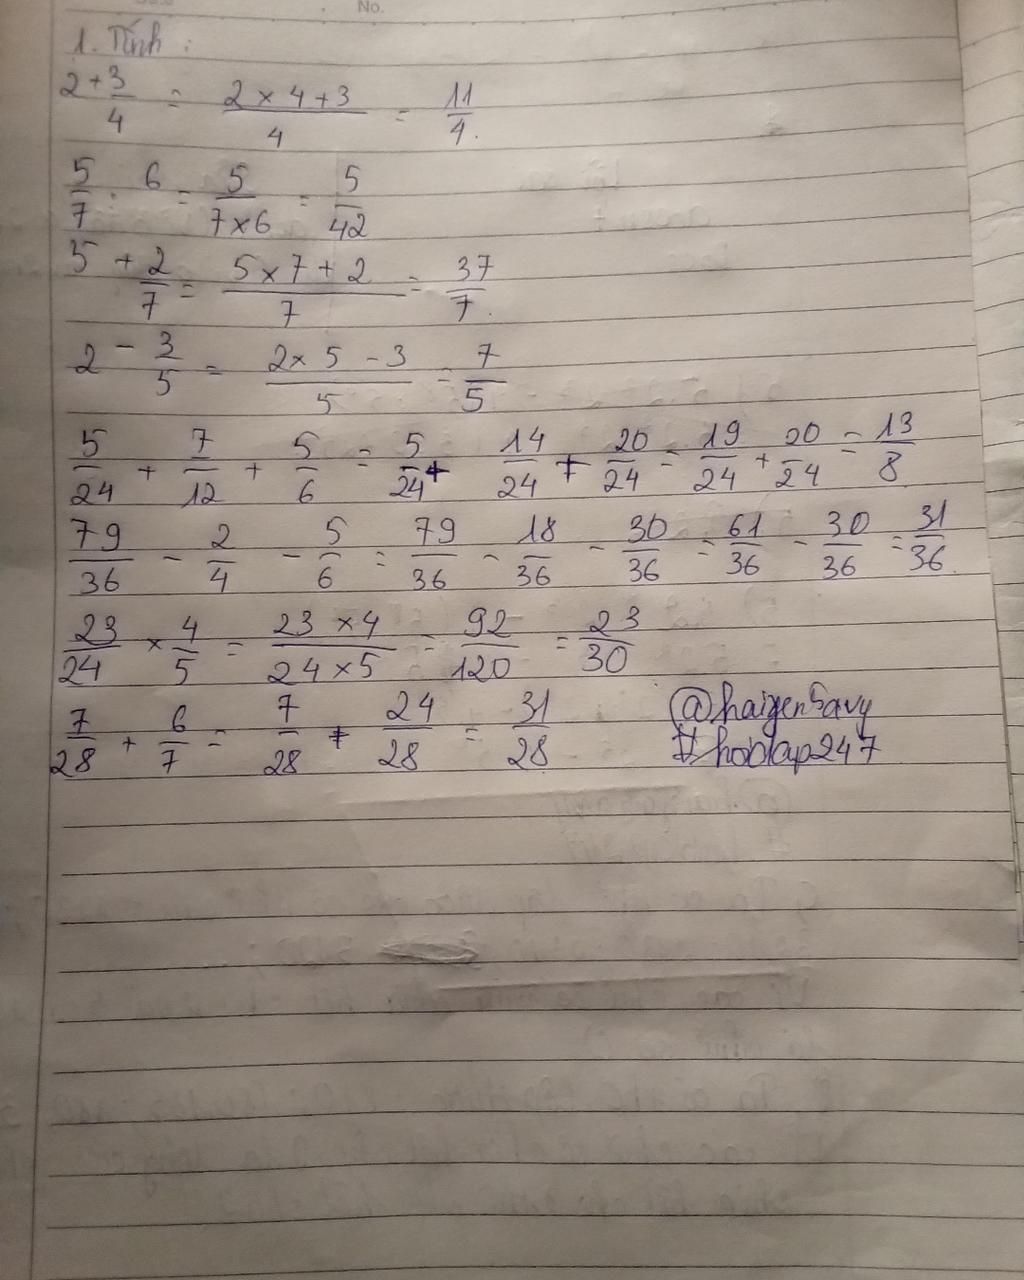 No.
1. Tính :
2 + 3/4 = (2 × 4 + 3)/4 = 11/4.
5/7 : 6 = 5/(7×6) = 5/42
5 + 2/7 = (5 × 7 + 2)/7 = 37/7.
2 - 3/5 = (2 × 5 - 3)/5 = 7/5
5/24 + 7/12 + 5/6 = 5/24 + 14/24 + 20/24 = 19/24 + 20/24 = 13/8
79/36 - 2/4 - 5/6 = 79/36 - 18/36 - 30/36 = 61/36 - 30/36 = 31/36.
23/24 × 4/5 = (23 × 4)/(24 × 5) = 92/120 = 23/30
7/28 + 6/7 = 7/28 + 24/28 = 31/28